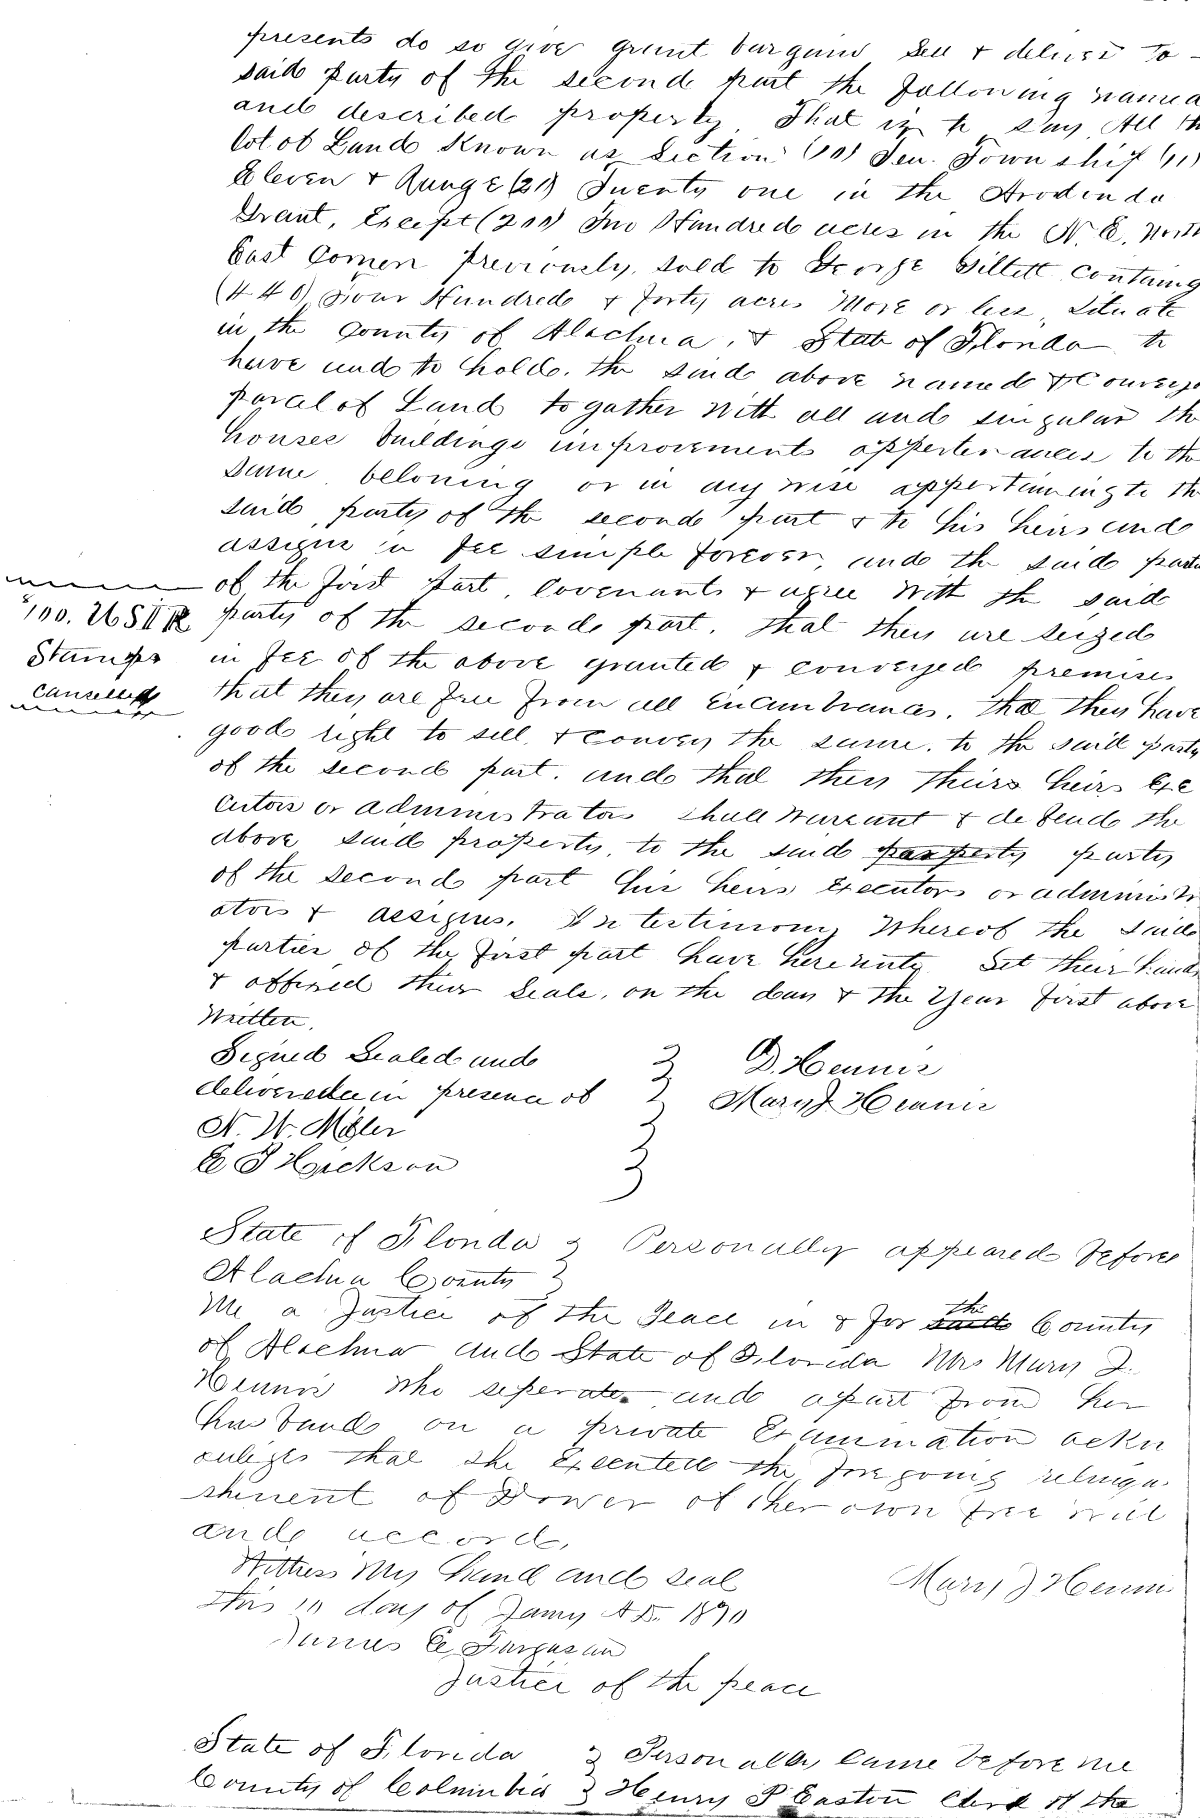 presents do so give grant bargain Sell & deliver to
said party of the second part the following named
and described property, That is to say All th
lot of Land Known as Section (10) Ten. Township (11)
Eleven & Range (21) Twenty one in the Arodindo
Grant, Except (200) Two Hundred acres in the N. E. North
East Corner previously sold to George Gillett containg
(440) Four Hundred & forty acres More or less, Situate
in the County of Alachua, & State of Florida to
have and to hold. the said above named & Conveye
parcel of Land togather with all and singular the
houses buildings improvements appertenances to the
same beloning or in any wise appertaining to th
said party of the second part & to his heirs and
assigns in fee simple forever, and the said parti
of the first part, Covenants & agree With the said
$1.00. U S I R
Stamps
Cancelled
party of the second part, that they are seized
in fee of the above granted & conveyed premises
that they are free from all Encumbrances, that they have
good right to sell & convey the same, to the said party
of the second part. and that they theirs heirs Exe
cutors or administrators shall warrant & defend the
above said property, to the said property party
of the second part his heirs Executors or administr
ators & assigns. In testimony Whereof the said
parties of the first part have hereunto Set their hands
& affixed their Seals, on the day & the Year first above
Written.
Signed Sealed and
delivered in presence of
N. W. Miller
E J Hickson
D. Hennis
Mary J Hennis
State of Florida
Alachua County
Personally appeared before
Me a Justice of the Peace in & for said the County
of Alachua and State of Florida Mrs Mary J.
Hennis who seperate and apart from her
husband on a private Examination ackn
owleges that she Executed the foregoing relinqu
shment of Dower of her own free will
and accord.
Witness My hand and seal
this 10 day of Jany A D. 1870
James E Furguson
Justice of the peace
Mary J Hennis
State of Florida
County of Columbia
Personally Came before me
Henry P Easton Clerk of the